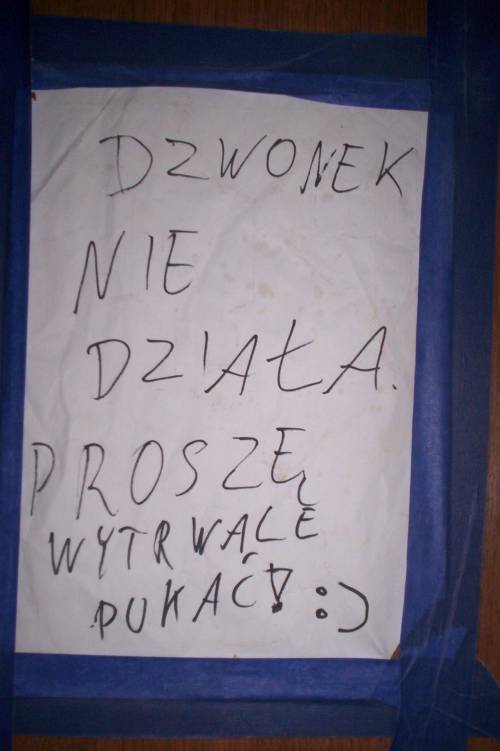 DZWONEK
NIE
DZIAŁA.
PROSZĘ
WYTRWALE
PUKAĆ! :)